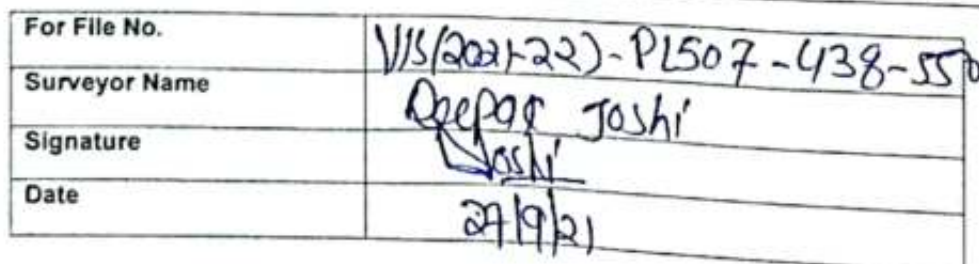 For File No. VIS(2021-22)-PL507-438-550
Surveyor Name Deepak Joshi
Signature Joshi
Date 27/9/21